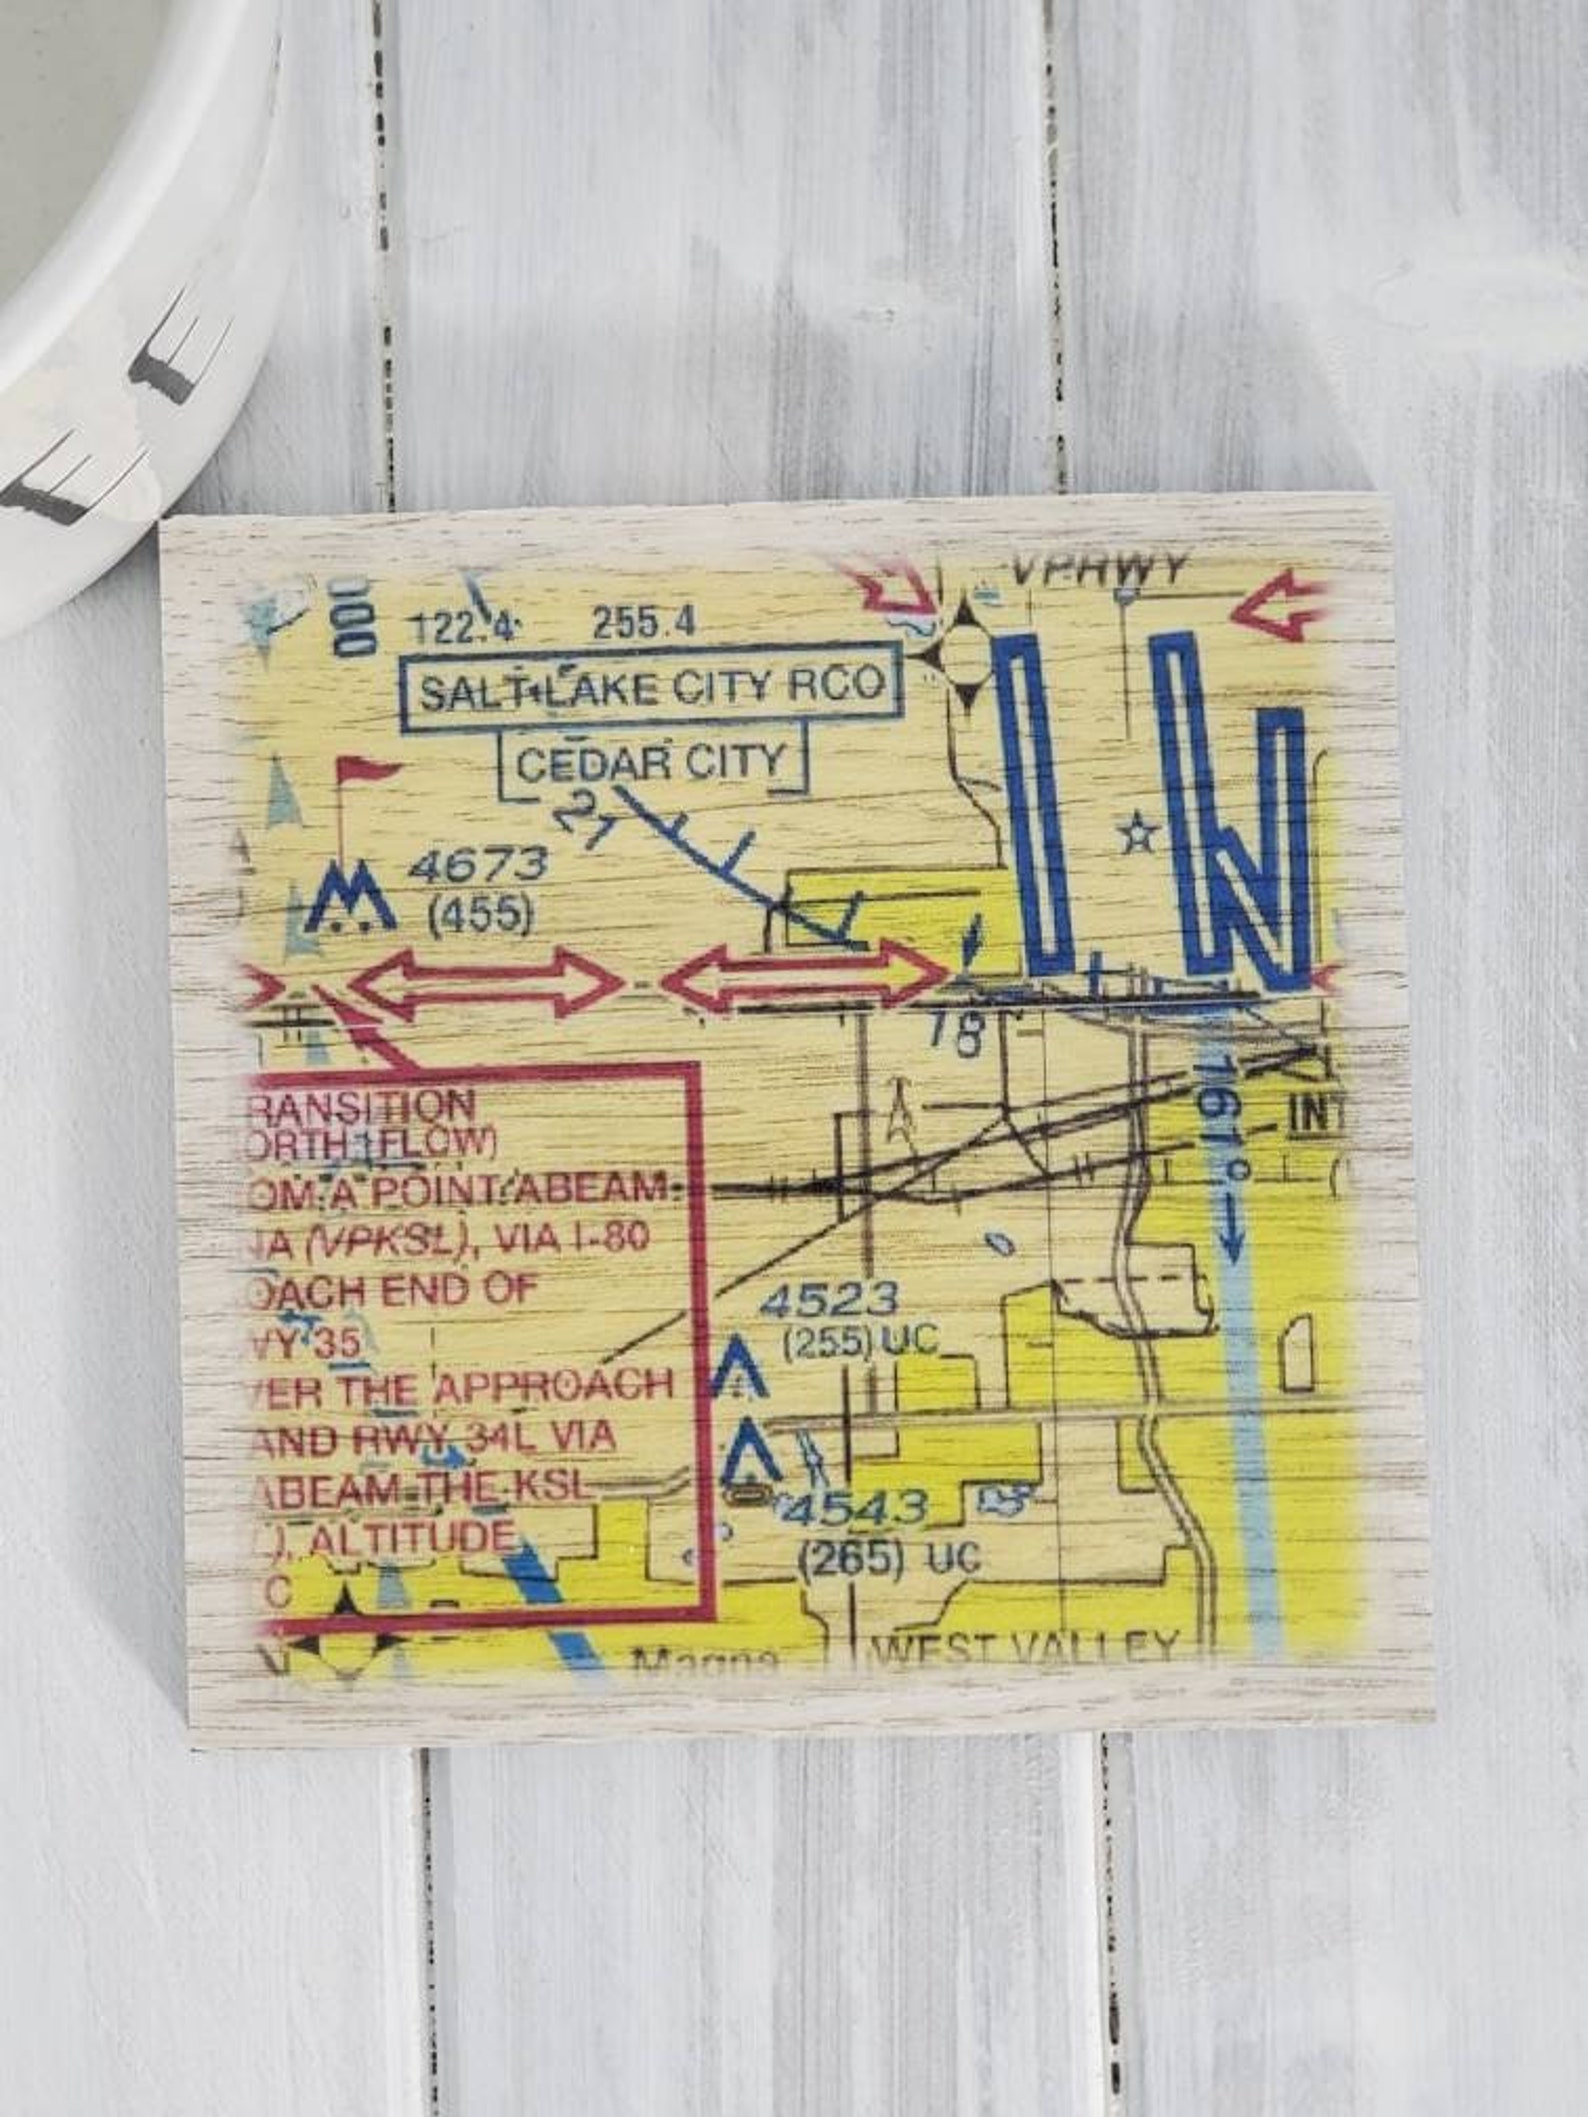 EE
000
122.4 255.4
VPRWY
SALT LAKE CITY RCO
CEDAR CITY
21
4673
(455)
18
161°
INT
RANSITION
ORTH FLOW)
OM A POINT ABEAM
(VPKSL), VIA I-80
OACH END OF
WY 35
VER THE APPROACH
AND RWY 34L VIA
ABEAM THE KSL
), ALTITUDE
C
4523
(255) UC
4543
(265) UC
Magna
WEST VALLEY